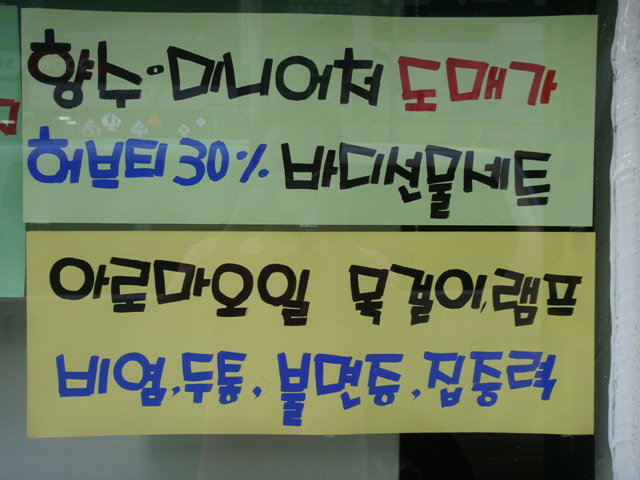 향수·미니어쳐 도매가
허브티 30% 바디선물세트
아로마오일 목걸이,램프
비염,두통,불면증,집중력